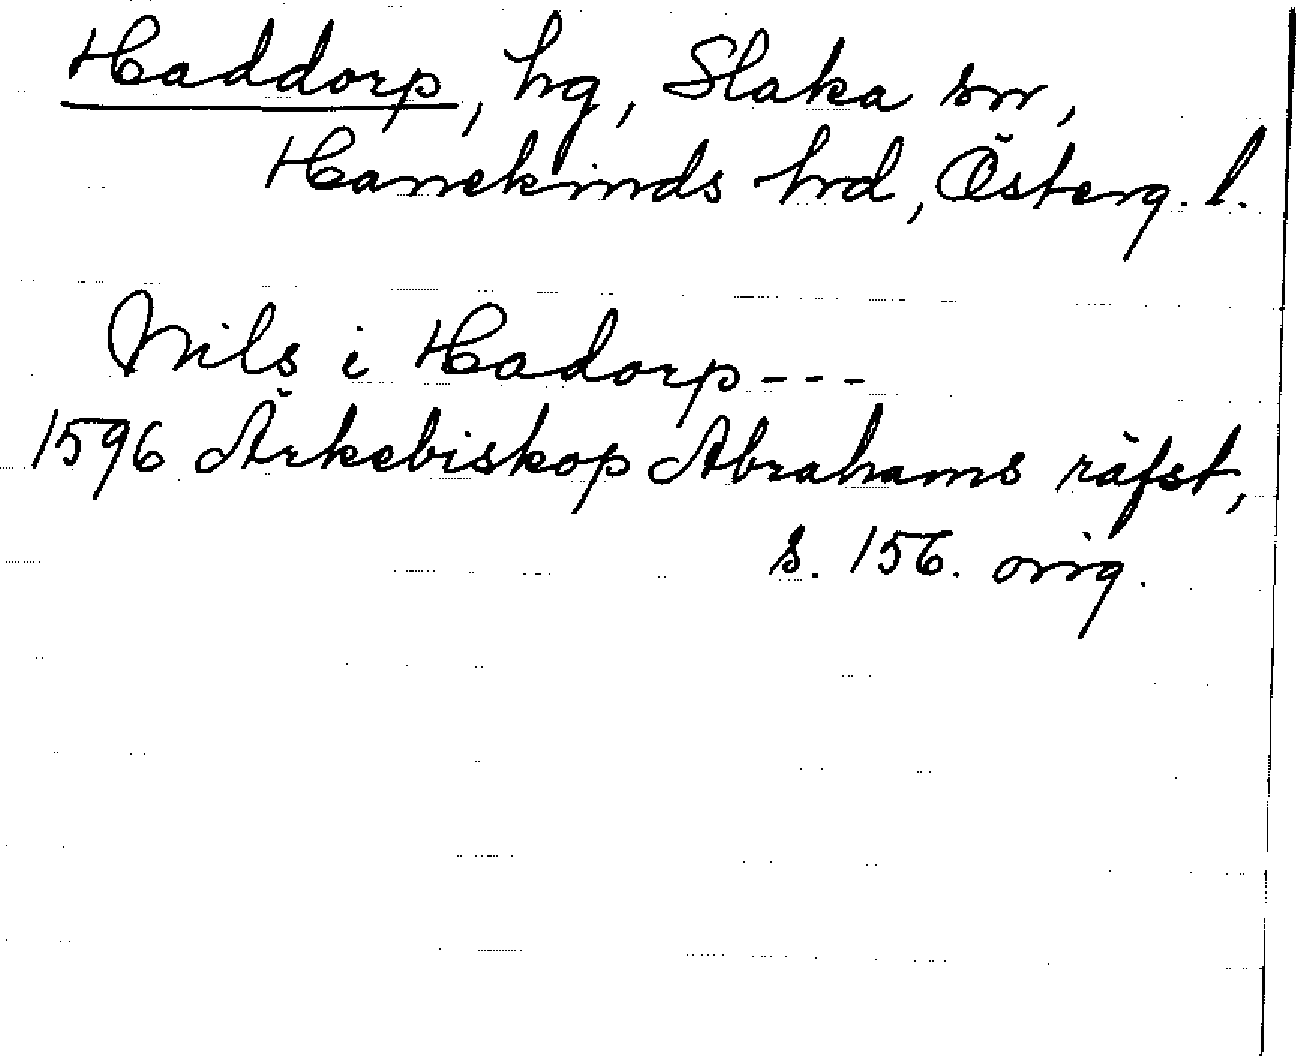 Haddorp, hg, Slaka sn,
Hanekinds hrd, Österg. l.
Nils i Hadorp---
1596 Ärkebiskop Abrahams räfst,
s. 156. orig.